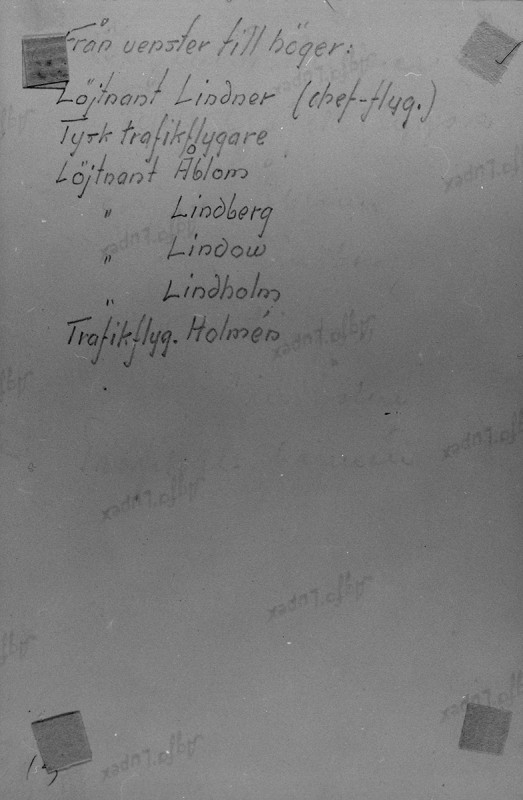 Från venster till höger:
Löjtnant Lindner (chef-flyg.)
Tysk trafikflygare
Löjtnant Åblom
" Lindberg
" Lindow
" Lindholm
Trafikflyg. Holmén